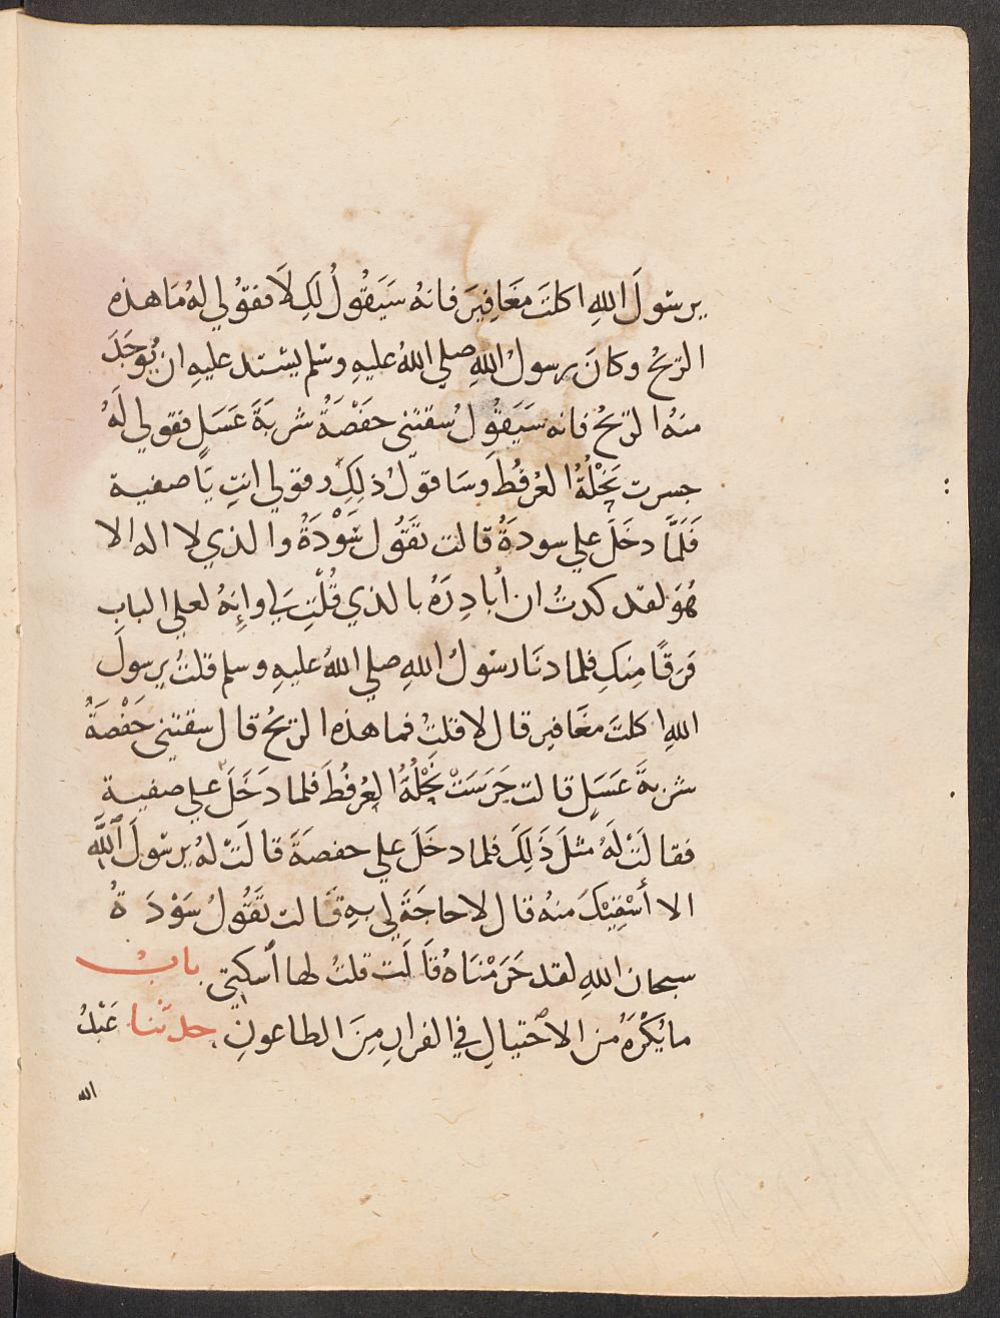 يرسولَ اللهِ اكلتَ مغَافِيرَ فانهُ سَيَقُولُ لَكِ لَا فقوُلي لهُ مَا هذه
الريحُ وكانَ رسولُ اللهِ صلي اللهُ عليهِ وسلم يشتد عليهِ ان يُوجَدَ
منهُ الريحُ فانه سَيَقُولُ سقتنى حَفْصَةُ شربَةَ عَسَلٍ فقولي لَهُ
جسرت نَحْلُهُ العُرفُطَ وسَاقولُ ذلِكِ وقولي انتِ يَا صفية
فَلَمَّا دخَلَ علي سودَةُ قالت تَقُول سَوْدَةُ والذي لا اله الا
هُوَ لقد كدتُ ان اُبادِرَهُ بالذي قُلْتِ لي وإنهُ لعلي البابِ
فرقًا مِنكِ فلما دنَا رسولُ اللهِ صلي اللهُ عليهِ وسلم قلتُ يرسولَ
اللهِ اكلتَ مغَافير قال لا قلتُ فما هذه الريحُ قال سقتني حَفْصَةُ
شربةَ عَسَلٍ قالت جَرَسَتْ نَحْلُهُ العُرفُطَ فلما دَخَلَ علي صفية
فقالَتْ لَهُ مثلَ ذَلِكَ فلما دخَلَ علي حفصَةَ قالَتْ لهُ يرسولَ اللَّهِ
الا أسْقِيْكَ منهُ قال لا حاجَةَ لي بهِ قَالت تَقُولُ سَوْدَةُ
سبحان اللهِ لقد حَرَمْنَاهُ قَالَت قلتُ لها اُسكتي بابُ
ما يُكْرَهُ من الاحتيالِ في الفرارِ مِنَ الطاعونِ حدثنا عَبْدُ
الله